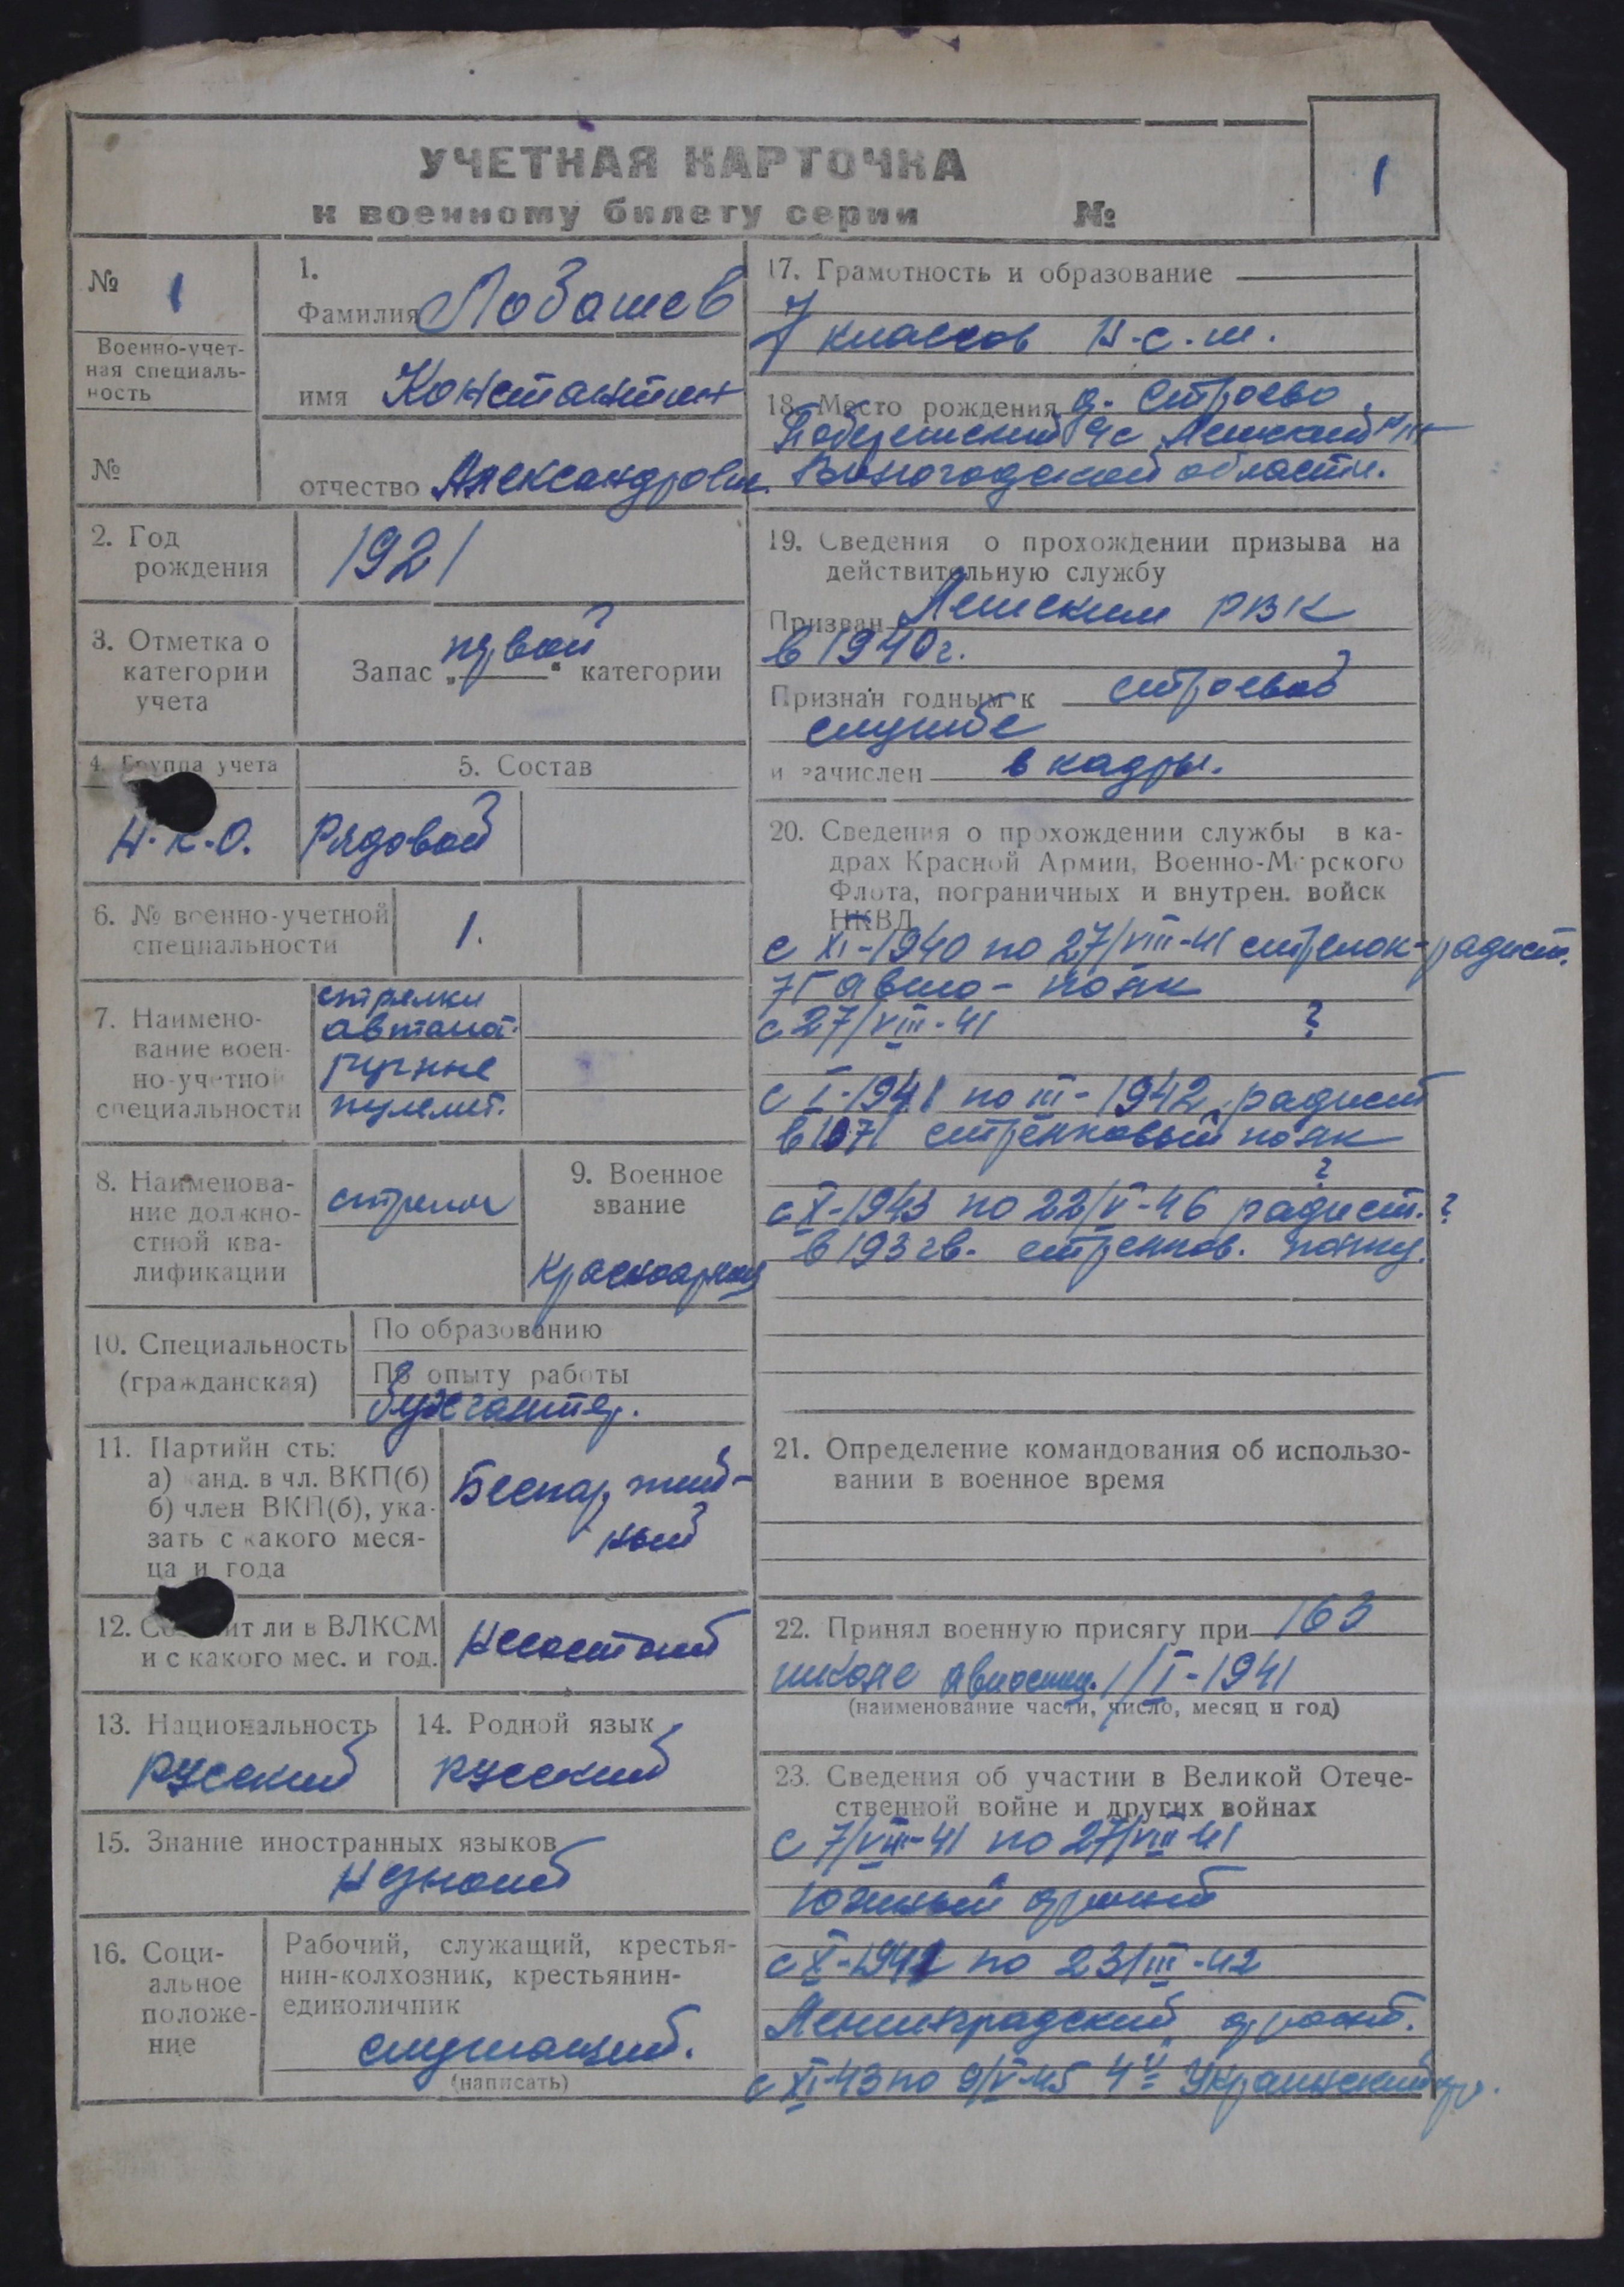 УЧЕТНАЯ КАРТОЧКА
к военному билету серии №
1
№ 1
Военно-учет-
ная специаль-
ность
№
1.
Фамилия Лобашев
имя Константин
отчество Александрович
2. Год
рождения
1921
3. Отметка о
категории
учета
Запас „первой“ категории
4. Группа учета
Н.К.О.
5. Состав
Рядовой
6. № военно-учетной
специальности
1.
7. Наимено-
вание воен-
но-учетной
специальности
стрелки
автомат.
ручные
пулемет.
8. Наименова-
ние должно-
стной ква-
лификации
стрелок
9. Военное
звание
Красноармеец
10. Специальность
(гражданская)
По образованию
По опыту работы
бухгалтер.
11. Партийн сть:
а) канд. в чл. ВКП(б)
б) член ВКП(б), ука-
зать с какого меся-
ца и года
Беспартий-
ный
12. Состоит ли в ВЛКСМ
и с какого мес. и год.
Несостоит
13. Национальность
русский
14. Родной язык
русский
15. Знание иностранных языков
Незнает
16. Соци-
альное
положе-
ние
Рабочий, служащий, крестья-
нин-колхозник, крестьянин-
единоличник
служащий.
(написать)
17. Грамотность и образование
7 классов Н.с.ш.
18. Место рождения д. Строево
с/с Лешский
Вологодской области.
19. Сведения о прохождении призыва на
действительную службу
Призван Лешским РВК
в 1940г.
Признан годным к строевой
службе
и зачислен в кадры.
20. Сведения о прохождении службы в ка-
драх Красной Армии, Военно-Морского
Флота, пограничных и внутрен. войск
НКВД
с XI-1940 по 27/VIII-41 стрелок-радист.
авио-полк
с 27/VIII-41 ?
с I-1941 по III-1942 радист
в 1071 стрелковый полк
?
с X-1943 по 22/V-46 радист. ?
в 193 гв. стрелков. полку.
21. Определение командования об использо-
вании в военное время
22. Принял военную присягу при 163
школе 1/I-1941
(наименование части, число, месяц и год)
23. Сведения об участии в Великой Отече-
ственной войне и других войнах
с 7/VIII-41 по 27/VIII-41
Южный фронт
с X-1941 по 23/III-42
Ленинградский фронт.
с XI-43 по 9/V-45 4й Украинский фр.